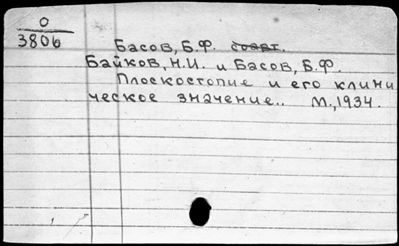 О
3806
Басов, Б.Ф. соавт.
Байков, Н.И. и Басов, Б.Ф.
Плоскостопие и его клини
ческое значение.. М., 1934.